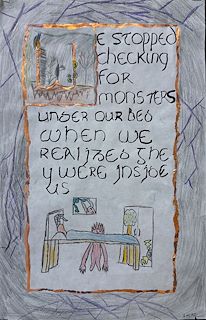 E STOPPED
CHECKING
FOR
MONSTERS
UNDER OUR BED
WHEN WE
REALIZED THE
Y WERE INSIDE
US